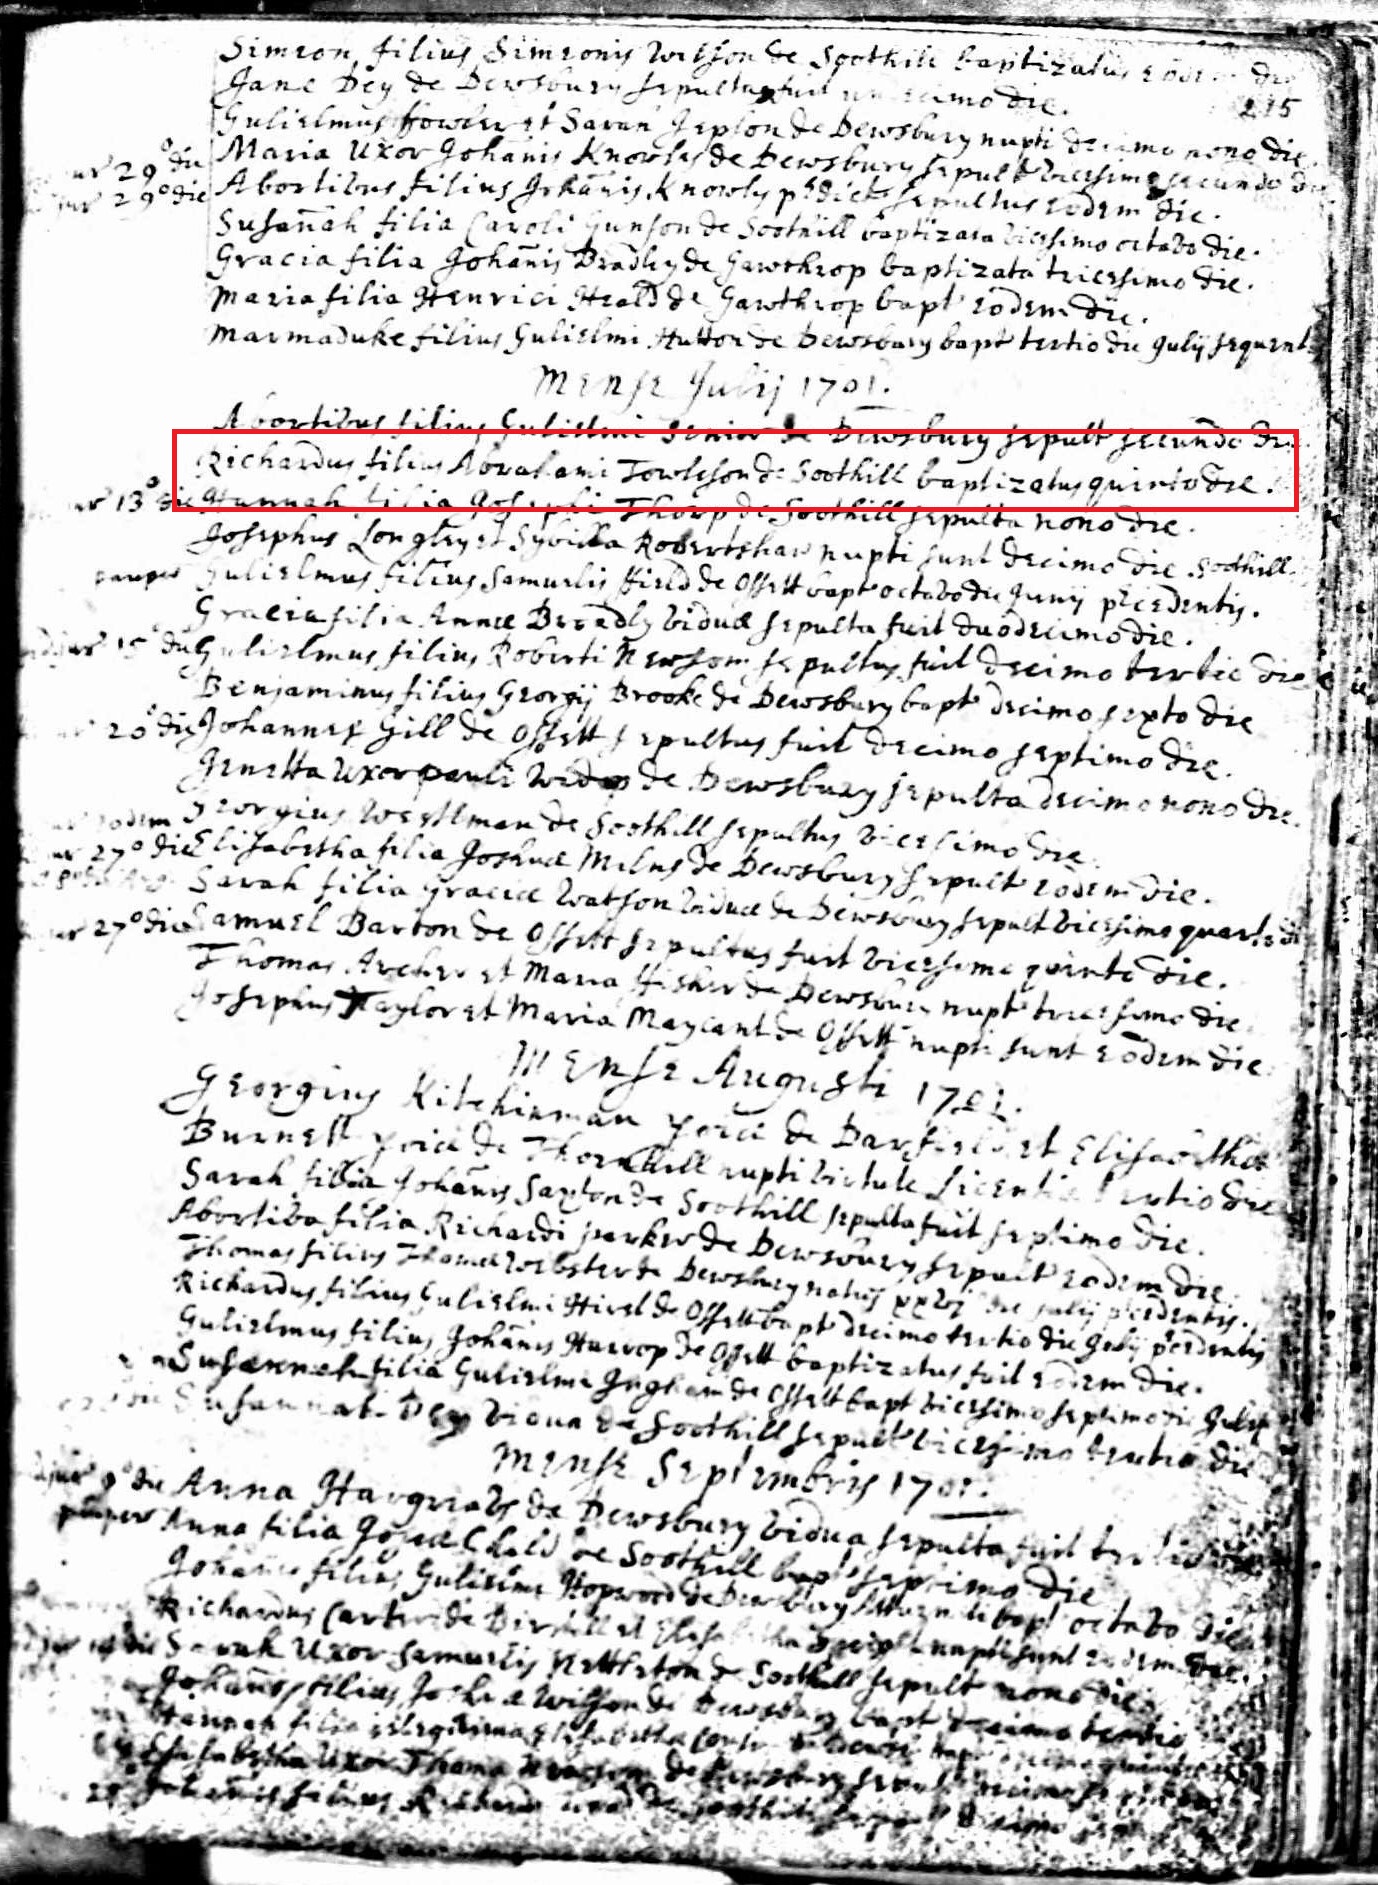 Simeon filius Simeonis Willson de Soothill baptizatus eodem die
Jane Dey de Dewsbury sepulta fuit undecimo die.
215
Gulielmus ffowler et Sarah Jepson de Dewsbury nupti decimo nono die
Maria Uxor Johānis Knowles de Dewsbury sepult vicessimo secundo die
29° die Abortivus filius Johānis Knowles pᵈdict sepultus eodem die.
29° die Susañah filia Caroli Gunson de Soothill baptizata vicessimo octavo die.
Gracia filia Johānis Bradley de Gawthrop baptizata tricessimo die.
Maria filia Henrici Heald de Gawthrop bapᵗ eodem die.
Marmaduke filius Gulielmi Hutton de Dewsbury bapᵗ tertio die Julij sequent
Mense Julij 1701.
Abortivus filius Gulielmi Senior de Dewsbury sepult secundo die
Richardus filius Abrahami Towleson de Soothill baptizatus quinto die.
13° die Hannah filia Josephi Thorp de Soothill sepulta nono die.
Josephus Longley et Sybilla Robertshaw nupti sunt decimo die Soothill
pauper Gulielmus filius Samuelis ffield de Ossett bapᵗ octavo die Junij pᵉcedentis.
Gracia filia Annæ Broadly viduæ sepulta fuit duodecimo die.
15° die Gulielmus filius Roberti Newsom sepultus fuit decimo tertio die
Benjaminus filius Georgij Brooke de Dewsbury bapᵗ decimo sexto die
20° die Johannes Gill de Ossett sepultus fuit decimo septimo die.
Jenetta Uxor Pauli de Dewsbury sepulta decimo nono die.
eodem Georgius Westerman de Soothill sepultus vicesimo die.
27° die Elisabetha filia Joshuæ Milns de Dewsbury sepult eodem die.
Sarah filia Graciæ Watson viduæ de Dewsbury sepult vicessimo quarto die
27° die Samuel Barton de Ossett sepultus fuit vicessimo quinto die.
Thomas Archer et Maria ffisher de Dewsbury nupᵗ tricessimo die
Josephus Taylor et Maria de Ossett nupti sunt eodem die.
Mense Augusti 1701.
Georgius Kitchinman pōiæ de Darfield et Elisabetha
Burnett pōiæ de Thornhill nupti virtute Licentiæ tertio die
Sarah filia Johānis Saxton de Soothill sepulta fuit septimo die.
Abortiva filia Richardi Parker de Dewsbury sepult eodem die.
Thomas filius Thomæ Webster de Dewsbury natus xxvj die Julij pᵉcedentis.
Richardus filius Gulielmi Hirst de Ossett bapᵗ decimo tertio die Julij pᵉcedentis
Gulielmus filius Johānis Harrop de Ossett baptizatus fuit eodem die.
Susannah filia Gulielmi Ingham de Ossett bapt vicessimo septimo die Julij
Susannah Dey vidua de Soothill sepult vicessimo tertio die
Mense Septembris 1701.
9° die Anna Hargreaves de Dewsbury vidua sepulta fuit tertio die
pauper Anna filia Child de Soothill bapᵗ septimo die
Johānes filius Gulielmi Hopwood de Dewsbury bapᵗ octavo die
Richardus Carter de Birstall et Elisabetha nupti sunt eodem die.
die Sarah Uxor Samuelis Nettleton de Soothill sepult nono die
Johānes filius Joshuæ Willson de Dewsbury bapᵗ decimo tertio
Hannah filia illegitima Elisabethæ
Elisabetha Uxor Thomæ de Dewsbury sepult
Johānis filius Richardi de Soothill